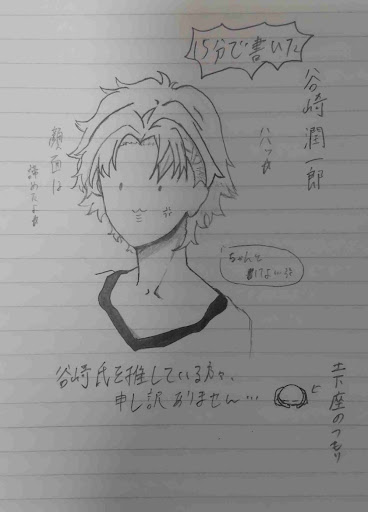 15分で書いた
谷崎潤一郎
顔面は
諦めたよね
ちゃんと
谷崎氏を推している方々、
申し訳ありません…
土下座のつもり